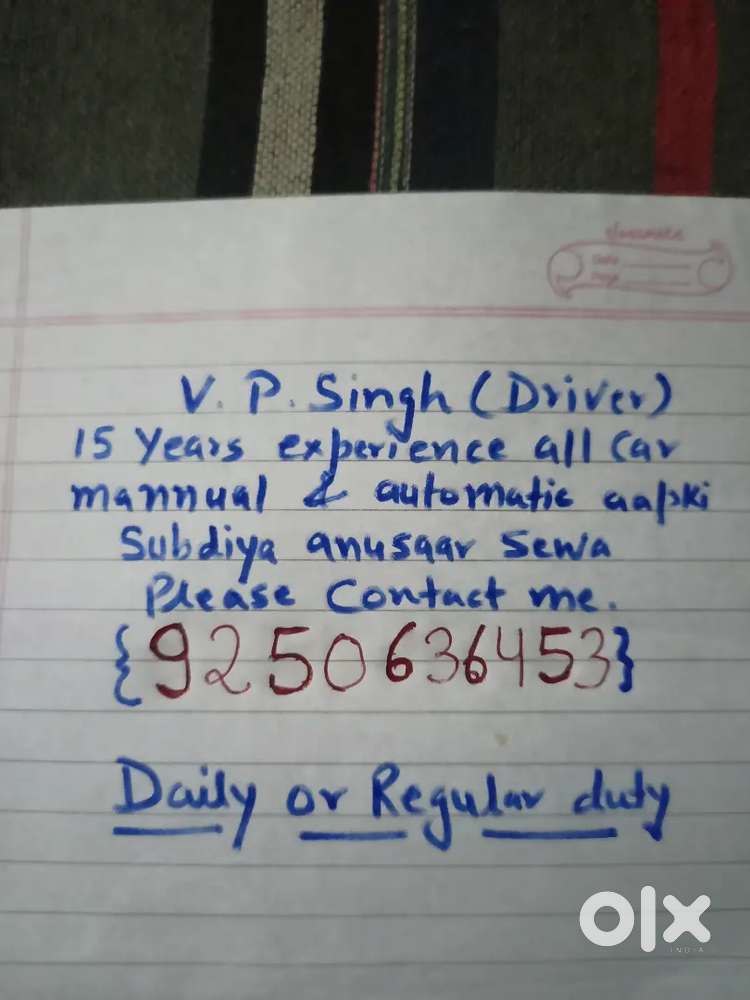 classmate
Date
Page
V. P. Singh (Driver)
15 Years experience all Car
mannual & automatic aapki
Subdiya anusaar sewa
Please Contact me.
{9250636453}
Daily or Regular duty
olx
INDIA